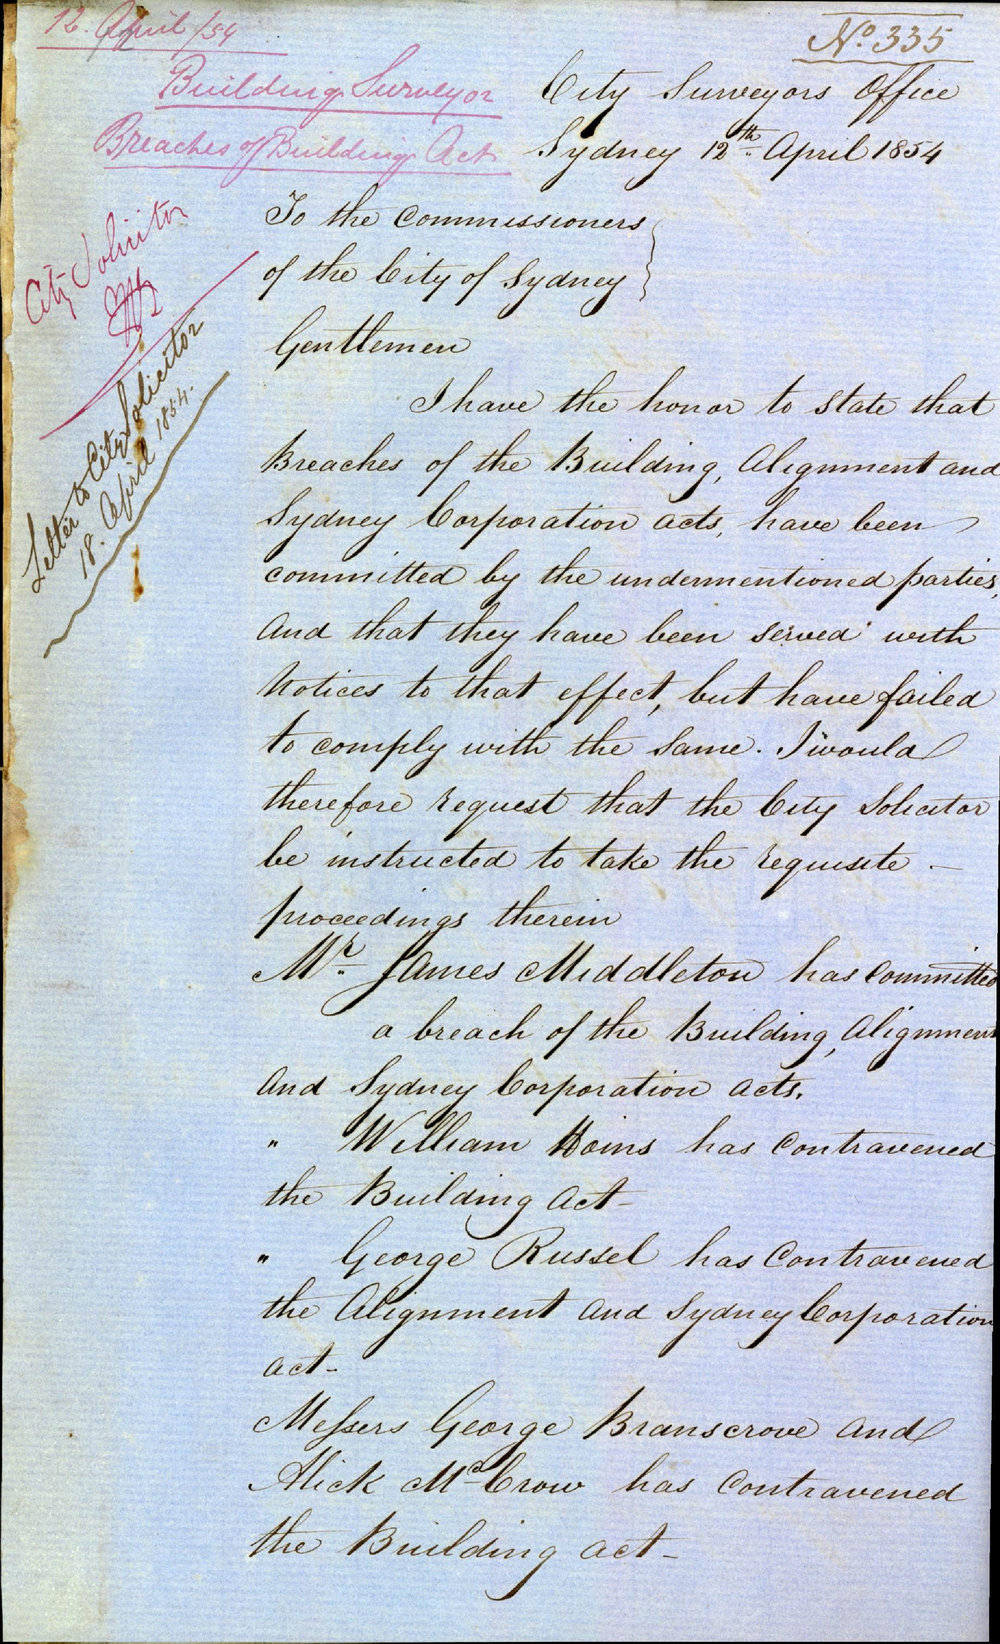 12. April /54
No. 335
Building Surveyor
Breaches of Building Act
City Surveyors Office
Sydney 12th. April 1854
City Solicitor
Letter to City Solicitor
18. April 1854.
To the Commissioners
of the City of Sydney
Gentlemen
I have the honor to state that
Breaches of the Building, Alignment and
Sydney Corporation acts, have been
committed by the undermentioned parties,
and that they have been served with
Notices to that effect, but have failed
to comply with the same. I would
therefore request that the City Solicitor
be instructed to take the requisite -
proceedings therein
Mr. James Middleton has committed
a breach of the Building, Alignment
and Sydney Corporation acts.
" William Hoins has contravened
the Building Act -
" George Russel has contravened
the Alignment and Sydney Corporation
act -
Messers George Branscrove and
Alick McCrow has contravened
the Building act -